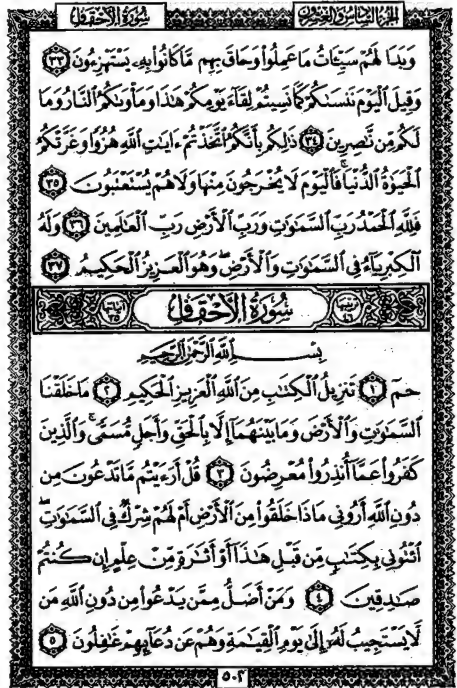 سُورَةُ الأَحْقَافِ الجزء السادس والعشرون
وَبَدَا لَهُمْ سَيِّـَٔاتُ مَا عَمِلُوا۟ وَحَاقَ بِهِم مَّا كَانُوا۟ بِهِۦ يَسْتَهْزِءُونَ ٣٣
وَقِيلَ ٱلْيَوْمَ نَنسَىٰكُمْ كَمَا نَسِيتُمْ لِقَآءَ يَوْمِكُمْ هَـٰذَا وَمَأْوَىٰكُمُ ٱلنَّارُ وَمَا
لَكُم مِّن نَّـٰصِرِينَ ٣٤ ذَٰلِكُم بِأَنَّكُمُ ٱتَّخَذْتُمْ ءَايَـٰتِ ٱللَّهِ هُزُوًا وَغَرَّتْكُمُ
ٱلْحَيَوٰةُ ٱلدُّنْيَا ۚ فَٱلْيَوْمَ لَا يُخْرَجُونَ مِنْهَا وَلَا هُمْ يُسْتَعْتَبُونَ ٣٥
فَلِلَّهِ ٱلْحَمْدُ رَبِّ ٱلسَّمَـٰوَٰتِ وَرَبِّ ٱلْأَرْضِ رَبِّ ٱلْعَـٰلَمِينَ ٣٦ وَلَهُ
ٱلْكِبْرِيَآءُ فِى ٱلسَّمَـٰوَٰتِ وَٱلْأَرْضِ ۖ وَهُوَ ٱلْعَزِيزُ ٱلْحَكِيمُ ٣٧
سُورَةُ الأَحْقَافِ
بِسْمِ ٱللَّهِ ٱلرَّحْمَـٰنِ ٱلرَّحِيمِ
حمٓ ١ تَنزِيلُ ٱلْكِتَـٰبِ مِنَ ٱللَّهِ ٱلْعَزِيزِ ٱلْحَكِيمِ ٢ مَا خَلَقْنَا
ٱلسَّمَـٰوَٰتِ وَٱلْأَرْضَ وَمَا بَيْنَهُمَآ إِلَّا بِٱلْحَقِّ وَأَجَلٍ مُّسَمًّى ۚ وَٱلَّذِينَ
كَفَرُوا۟ عَمَّآ أُنذِرُوا۟ مُعْرِضُونَ ٣ قُلْ أَرَءَيْتُم مَّا تَدْعُونَ مِن
دُونِ ٱللَّهِ أَرُونِى مَاذَا خَلَقُوا۟ مِنَ ٱلْأَرْضِ أَمْ لَهُمْ شِرْكٌ فِى ٱلسَّمَـٰوَٰتِ ۖ
ٱئْتُونِى بِكِتَـٰبٍ مِّن قَبْلِ هَـٰذَآ أَوْ أَثَـٰرَةٍ مِّنْ عِلْمٍ إِن كُنتُمْ
صَـٰدِقِينَ ٤ وَمَنْ أَضَلُّ مِمَّن يَدْعُوا۟ مِن دُونِ ٱللَّهِ مَن
لَّا يَسْتَجِيبُ لَهُۥٓ إِلَىٰ يَوْمِ ٱلْقِيَـٰمَةِ وَهُمْ عَن دُعَآئِهِمْ غَـٰفِلُونَ ٥
٥٠٢